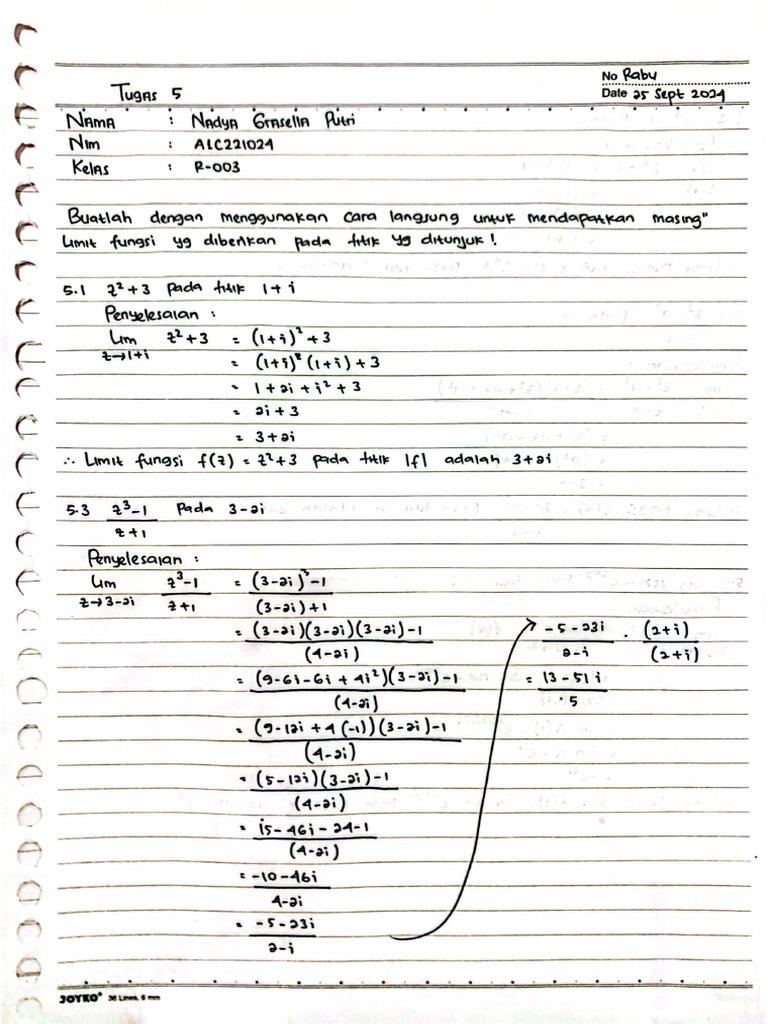 No Rabu
Tugas 5
Date 25 Sept 2024
Nama : Nadya Grasella Putri
Nim : A1C221024
Kelas : R-003
Buatlah dengan menggunakan cara langsung untuk mendapatkan masing"
limit fungsi yg diberikan pada titik yg ditunjuk!
5.1 z²+3 pada titik 1+i
Penyelesaian :
Lim z→1+i z²+3 = (1+i)²+3
= (1+i)² (1+i)+3
= 1+2i+i²+3
= 2i+3
= 3+2i
∴ Limit fungsi f(z) = z²+3 pada titik |f| adalah 3+2i
5.3 z³-1 / z+1 pada 3-2i
Penyelesaian :
Lim z→3-2i z³-1 / z+1 = (3-2i)³-1 / (3-2i)+1
= (3-2i)(3-2i)(3-2i)-1 / (4-2i)
= (9-6i-6i+4i²)(3-2i)-1 / (4-2i)
= (9-12i+4(-1))(3-2i)-1 / (4-2i)
= (5-12i)(3-2i)-1 / (4-2i)
= 15-46i-24-1 / (4-2i)
= -10-46i / 4-2i
= -5-23i / 2-i
-5-23i / 2-i . (2+i) / (2+i)
= 13-51i / 5
JOYKO® 36 Lines, 6 mm